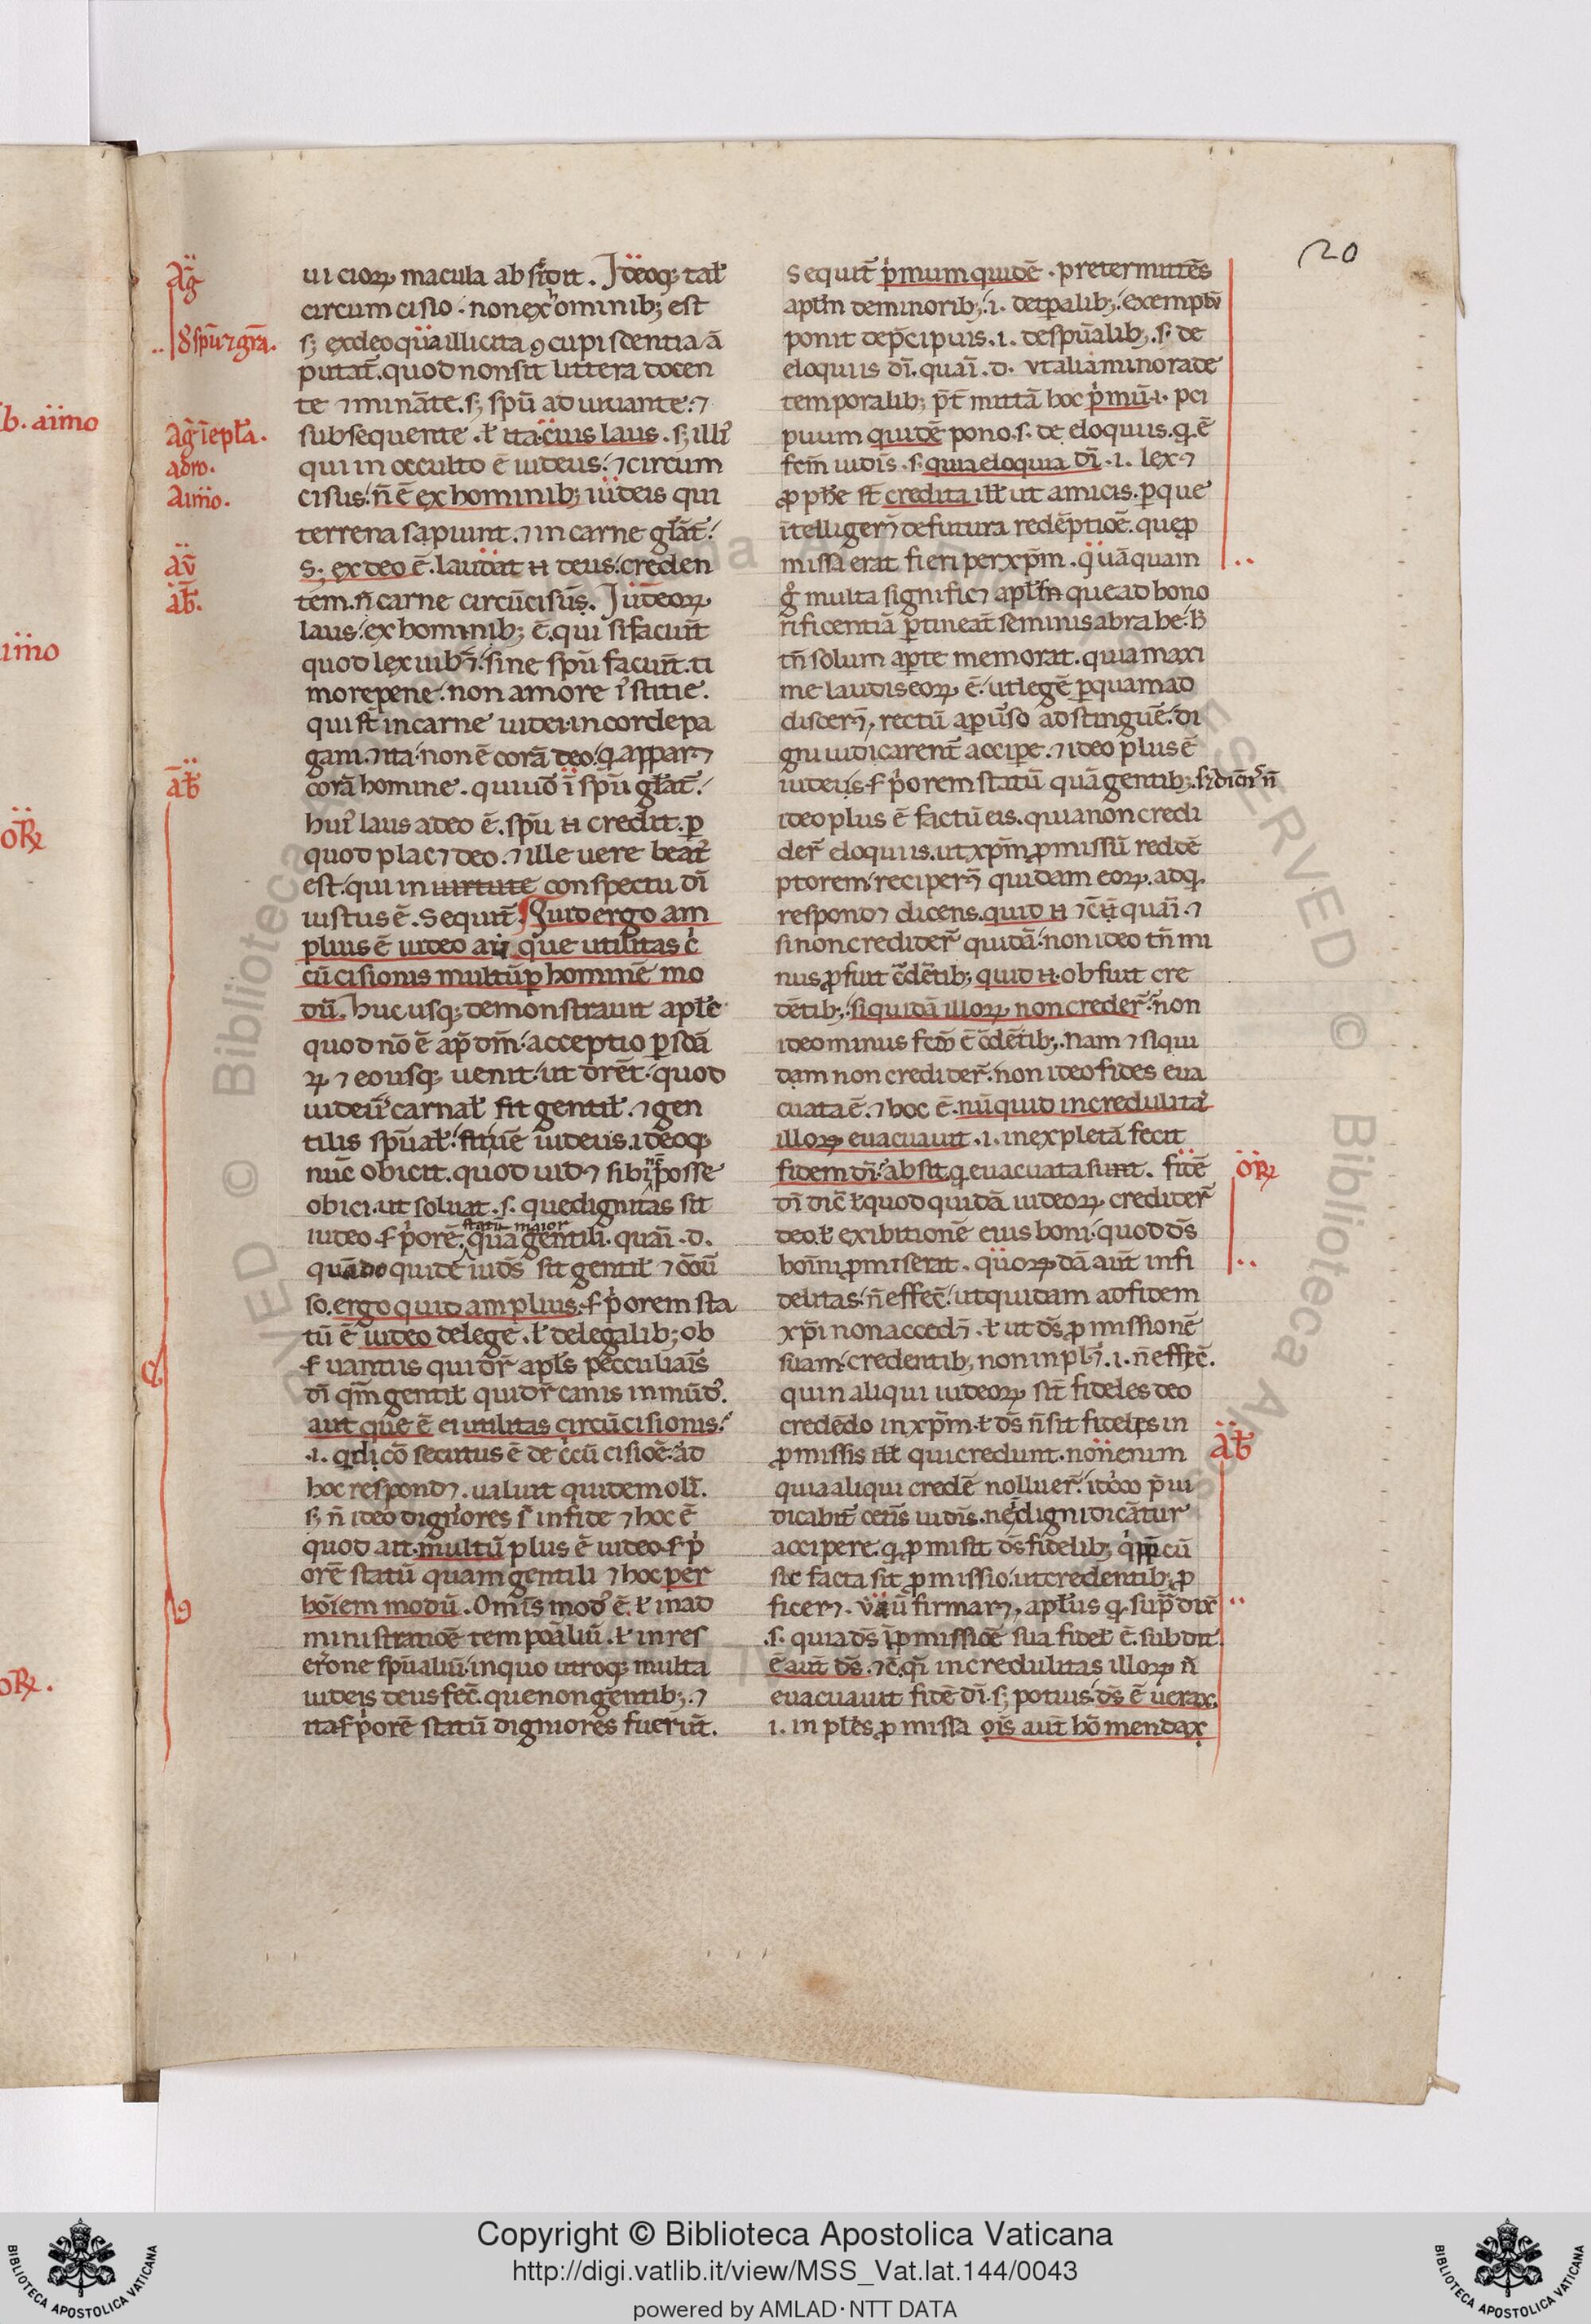 20
b. aimo
imo
oꝝ
oꝝ.
Ag̃
δ spū⁊ grā.
Ag̃ ī epl̃a.
adro.
Aimo.
aū
ab̃.
ab̃
ui cioꝝ macula absc̃idit. Ideoqꝫ tał
circumcisio. non ex ominibꝫ est
sꝫ ex deo quia illicita ꝯcupiscentia ā
putat̃. quod non sit littera docen
te ⁊ mināte. sꝫ spū adiuuante. ⁊
subsequente. ł ita. cuius laus. sꝫ illi᷒
qui in occulto ē iudeus. ⁊ circum
cisus. ñ ē ex hominibꝫ iudeis qui
terrena sapiunt. ⁊ in carne gl̃āt̃.
sꝫ ex deo ē. laudat n̄ deus. creden
tem. ñ carne circūcisus̃. Iudeoꝝ
laus. ex hominibꝫ ē. qui si faciūt
quod lex iubꝫ. sine spū faciūt. ti
more pene. non amore iustitie.
qui st̃ in carne iudei. in corde pa
gani. ⁊ ita. non ē corā deo. q̨ apparꝫ
corā homine. qui uō ī spū gl̃at̃.
hui᷒ laus a deo ē. spū n̄ credit. ꝑ
quod placꝫ deo. ⁊ ille uere beat᷒
est. qui in uirtute conspectu dī
iustus ē. Sequit̃. Quid ergo am
plius ē iudeo aut que utilitas cͥ
cūcisionis multū ꝑ hominē mo
dū. Hucusqꝫ demonstrauit apłe
quod nō ē ap̃ dm̄ acceptio ꝑsōa
ꝝ ⁊ eousqꝫ uenit. ut dr̄et. quod
iudeus carnał fit gentił. ⁊ gen
tilis spūał. iudeus. ideoqꝫ
nūc obicit. quod uidꝫ sibi posse
obici. ut soluat. s. que dignitas sit
statū maior
iudeo ẜ pͥorē quā gentili. quāi. d.
quādo quidē iudꝰ fit gentił ⁊ cōuͥ
so. ergo quid amplius. ẜ pͥorem sta
tū ē iudeo de lege. ł de legalibꝫ ob
ẜuantiis qui dr̄ apłs pecculiaris
dī qm̄ gentił qui dr̄ canis inmūdꝰ.
aut que ē ei utilitas circūcisionis.
.i. q̨ dico secutus ē de cͥcūcisiōe. ad
hoc respondꝫ. ualuit quidem oli.
sꝫ ñ ideo digniores st̃ in fide ⁊ hoc ē
quod ait. multū plus ē iudeo ẜ pͥ
orē statū quam gentili ⁊ hoc per
hōiem modū. Omnis modꝰ ē. ł in ad
ministratiōe tempōaliū. ł in res
er̃one spūaliū. in quo utroqꝫ multa
iudeis deus fec̃. que non gentibꝫ. ⁊
ita ẜ pͥorē statū digniores fuerūt.
Sequit̃ pͥmum quidē. pretermittēs
apłm de minoribꝫ. i. de tp̄alibꝫ. exemplū
ponit de p̄cipuis. i. de spūalibꝫ. s. de
eloquiis dī. quāi. d. vt alia minora de
temporalibꝫ p̄t̃mittā hoc pͥmū. i. pci
puum quidē pono. s. de eloquiis. q̨ ē
fcm̄ iudis. s. quia eloquia dī. i. lex ⁊
ꝓphe st̃ credita illis ut amicis. ꝑ que
ītelligerꝫ de futura redēptiōe. que ꝓ
missa erat fieri per xp̄m. quāquam
g̊ multa significꝫ apłm que ad hono
rificentiā ꝑtineat̃ seminis abrahe. hͦ
tñ solum aꝑte memorat. quia maxi
me laudis eoꝝ ē. ut legē ꝑ quam ad
discerꝫ, rectū a puͥso adstinguē. di
gni iudicarent̃ accipe. ⁊ ideo plus ē
iudeis ẜ pͥorem statū quā gentibꝫ. sꝫ dicit᷒ ñ
ideo plus ē factū eis. quia non credi
der̃ eloquiis. ut xp̄m ꝓmissū redē
ptorem reciperꝫ quidam eoꝝ. ad q̨
respondꝫ dicens. quid n̄ ⁊c̃ quāi. ⁊
si non credider̃ quidā. non ideo tñ mi
nus ꝓfuit c̃dētibꝫ. quid n̄. obfuit cre
dētibꝫ. si quidā illoꝝ non creder̃. non
ideo minus fcm̄ ē c̃dētibꝫ. Nam ⁊ si qui
dam non credider̃. non ideo fides eua
cuata ē. ⁊ hoc ē. nūquid incredulita᷒
illoꝝ euacuauit. i. inexpletā fecit
fidem dī. absit. q̨ euacuata sunt. fidē
dī dic̃ ł quod quidā iudeoꝝ crediter̃
deo. ł exibitionē eius boni. quod dꝰ
hoīni ꝓmiserat. quoꝝdā aut̃ infi
delitas. ñ effec̃. ut quidam ad fidem
xp̄i non accedꝫ. ł ut dꝰ ꝓmissionē
suam. credentibꝫ non inplꝫ. i. ñ effec̃.
quin aliqui iudeoꝝ sīt fideles deo
credēdo in xp̄m. ł dꝰ ñ sit fidelis in
ꝓmissis illis qui credunt. non enim
quia aliqui credē noluer̃. idcͦco p̄iu
dicabit̃ ceteris iudis. ne digni dicātur
accipere. q̨ ꝓmisit dꝰ fidelibꝫ qͥppe cū
sic facta sit ꝓmissio. ut credentibꝫ ꝓ
ficerꝫ. Vt aū firmarꝫ, apłus q̨ sup̃ dixꝫ
.s. quia dꝰ ī ꝓmissiōe sua fidel̃ ē. subdit.
ē aut̃ dꝰ. ⁊c̃. q̨i incredulitas illoꝝ ñ
euacuauit fidē dī. sꝫ potius dꝰ ē uerax.
i. in plēs ꝓmissa oīs aut̃ hō mendax
oꝝ
ab̃
Copyright © Biblioteca Apostolica Vaticana
http://digi.vatlib.it/view/MSS_Vat.lat.144/0043
powered by AMLAD·NTT DATA
BIBLIOTECA APOSTOLICA VATICANA
BIBLIOTECA APOSTOLICA VATICANA